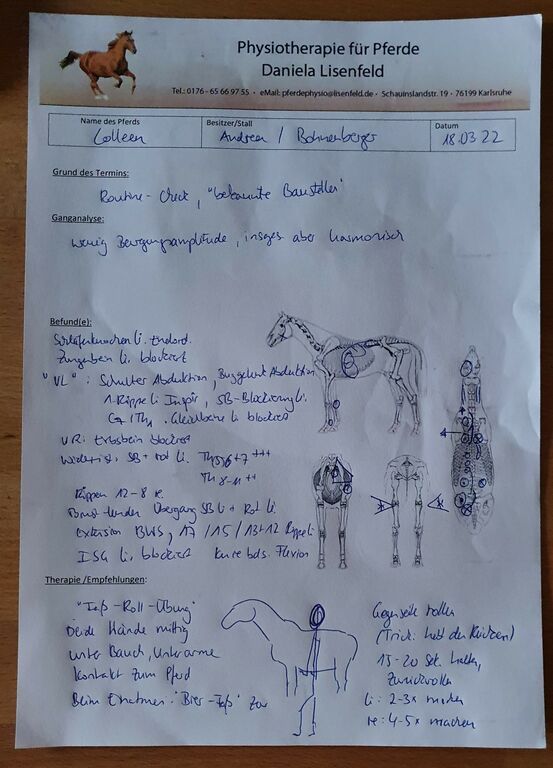 Physiotherapie für Pferde
Daniela Lisenfeld
Tel.: 0176 - 65 66 97 55 • eMail: pferdephysio@lisenfeld.de • Schauinslandstr. 19 • 76199 Karlsruhe
Name des Pferds Besitzer/Stall Datum
Colleen Andrea / Bohnenberger 18.03.22
Grund des Termins:
Routine-Check, "bekannte Baustellen"
Ganganalyse:
wenig Bewegungsamplitude, insges. aber harmonisch
Befund(e):
Schläfenknochen li.
Zungenbein li. blockiert
"VL": Schulter Abduktion, Buggelenk Abduktion
1. Rippe li Inspir, SB-Blockierung li.
Gleichbeine li blockiert
VR: Erbsbein blockiert
Widerrist: SB + Rot li.
Th 8-11 ++
Rippen 12-8 re.
Übergang SB li + Rot li
Extension BWS, 17 / 15 / 13+12 Rippe li
ISG li. blockiert Knie bds. Flexion
Therapie /Empfehlungen:
"Faß-Roll-Übung"
beide Hände mittig
unter Bauch, Unterarme
Kontakt zum Pferd
Beim Einatmen: "Bier-Faß" zur
Gegenseite rollen
(Trick: hebt den Rücken)
15-20 Sek. halten,
zurückrollen
li: 2-3x machen
re: 4-5x machen